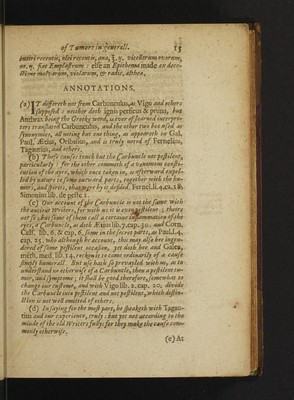 of Tumors in generall. 15
butiri recentis, olei recentis, ana, ℥. ij. vitellorum ovorum,
nr. ij. fiat Emplastrum: else an Epithema made ex deco-
ctione malvarum, violarum, & radic. althea.
ANNOTATIONS.
(a) IT differeth not from Carbunculus, as Vigo and others
supposed: neither doth ignis persicus & pruna, but
Anthrax being the Greeky word, is ever of learned interpre-
ters translated Carbunculus, and the other two but used as
synonymies, all noting but one thing, as appeareth by Gal.
Paul, Ætius, Oribasius, and is truly noted of Fernelius,
Tagautius, and others.
(b) These causes touch but the Carbuncle not pestilent,
particularly: for the other commeth of a venomous consti-
tution of the ayre, which once taken in, is afterward expel-
led by nature to some outward parts, together with the hu-
mors, and spirits, that were by it defiled. Fernel. li. 4. ca. 18.
Simonius lib. de peste 1.
(c) Our account of the Carbuncle is not the same with
the ancient Writers, for with us it is ever pestilent: theirs
not so; but some of them call a certaine inflammation of the
eyes, a Carbuncle, as doth Ætius lib. 7. cap. 30. and Corn.
Cels. lib. 6. & cap. 6. some in the secret parts, as Paul. l. 4.
cap. 25. who although by account, this may also bee ingen-
dered of some pestilent occasion, yet doth hee and Galen,
meth. med. lib. 14. reckon it to come ordinarily of a cause
simply humorall. But use hath so prevayled with us, as to
understand no otherwise of a Carbuncle, then a pestilent tu-
mor, and symptome; it shall be good therefore, somewhat to
change our custome, and with Vigo lib. 2. cap. 20. divide
the Carbuncle into pestilent and not pestilent, which distin-
ction is not well omitted of others.
(d) In saying for the most part, he speaketh with Tagau-
tius and our experience, truly: but yet not according to the
minde of the old Writers fully: for they make the cause com-
monly otherwise.
(e) At